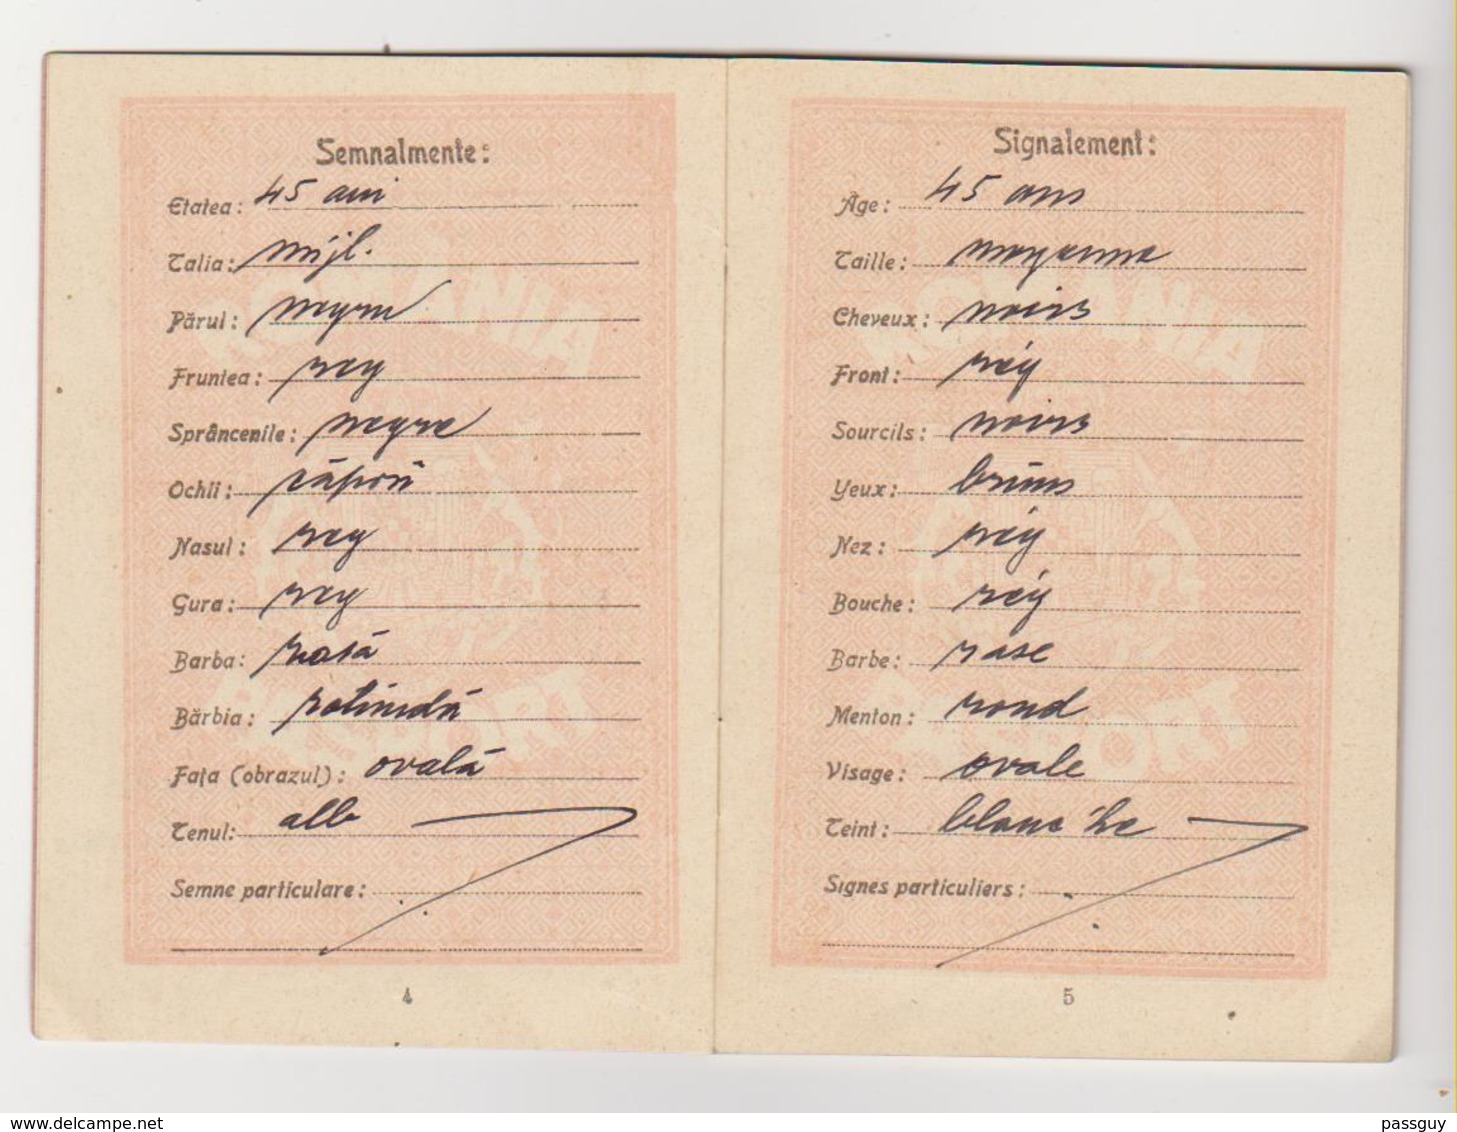 Semnalmente:
Etatea: 45 ani
Talia: mijl.
Părul: negru
Fruntea: reg
Sprâncenile: negre
Ochii: căprii
Nasul: reg
Gura: reg
Barba: rasă
Bărbia: rotundă
Fața (obrazul): ovală
Tenul: alb
Semne particulare:
4
Signalement:
Âge: 45 ans
Taille: moyenne
Cheveux: noirs
Front: rég
Sourcils: noirs
Yeux: bruns
Nez: rég
Bouche: rég
Barbe: rase
Menton: rond
Visage: ovale
Teint: blanche
Signes particuliers:
5
ROMÂNIA
PASPORT
ROMÂNIA
PASPORT
www.delcampe.net
passguy